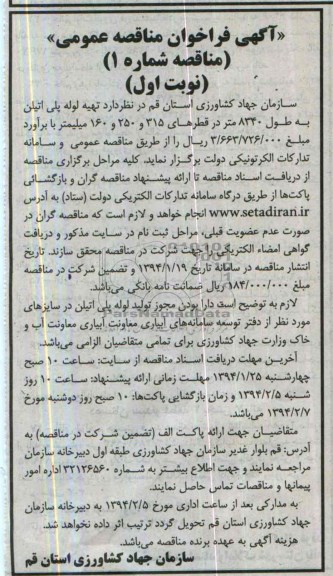 «آگهی فراخوان مناقصه عمومی»
(مناقصه شماره ۱)
(نوبت اول)
سازمان جهاد کشاورزی استان قم در نظردارد تهیه لوله پلی اتیلن
به طول ۸۳۴۰ متر در قطرهای ۳۱۵ و ۲۵۰ و ۱۶۰ میلیمتر با برآورد
مبلغ ۳/۶۶۳/۷۲۶/۰۰۰ ریال را از طریق مناقصه عمومی و سامانه
تدارکات الکترونیکی دولت برگزار نماید. کلیه مراحل برگزاری مناقصه
از دریافت اسناد مناقصه تا ارائه پیشنهاد مناقصه گران و بازگشائی
پاکت‌ها از طریق درگاه سامانه تدارکات الکتریکی دولت (ستاد) به آدرس
www.setadiran.ir انجام خواهد و لازم است که مناقصه گران در
صورت عدم عضویت قبلی، مراحل ثبت نام در سایت مذکور و دریافت
گواهی امضاء الکتریکی را جهت شرکت در مناقصه محقق سازند. تاریخ
انتشار مناقصه در سامانه تاریخ ۱۳۹۴/۱/۱۹ و تضمین شرکت در مناقصه
مبلغ ۱۸۴/۰۰۰/۰۰۰ ریال ضمانت نامه بانکی می‌باشد.
لازم به توضیح است دارا بودن مجوز تولید لوله پلی اتیلن در سایزهای
مورد نظر از دفتر توسعه سامانه‌های آبیاری معاونت آبیاری معاونت آب و
خاک وزارت جهاد کشاورزی برای تمامی متقاضیان الزامی می‌باشد.
آخرین مهلت دریافت اسناد مناقصه از سایت: ساعت ۱۰ صبح
چهارشنبه ۱۳۹۴/۱/۲۵ مهلت زمانی ارائه پیشنهاد: ساعت ۱۰ روز
شنبه ۱۳۹۴/۲/۵ و زمان بازگشایی پاکت‌ها: ۱۰ صبح روز دوشنبه مورخ
۱۳۹۴/۲/۷ می‌باشد.
متقاضیان جهت ارائه پاکت الف (تضمین شرکت در مناقصه) به
آدرس: قم بلوار غدیر سازمان جهاد کشاورزی طبقه اول دبیرخانه سازمان
مراجعه نمایند و جهت اطلاع بیشتر به شماره ۳۲۱۲۶۵۶۰ اداره امور
پیمانها و مناقصات تماس حاصل نمایند.
به مدارکی بعد از ساعت اداری مورخ ۱۳۹۴/۲/۵ به دبیرخانه سازمان
جهاد کشاورزی استان قم تحویل گردد ترتیب اثر داده نخواهد شد.
هزینه آگهی به عهده برنده مناقصه می‌باشد.
سازمان جهاد کشاورزی استان قم